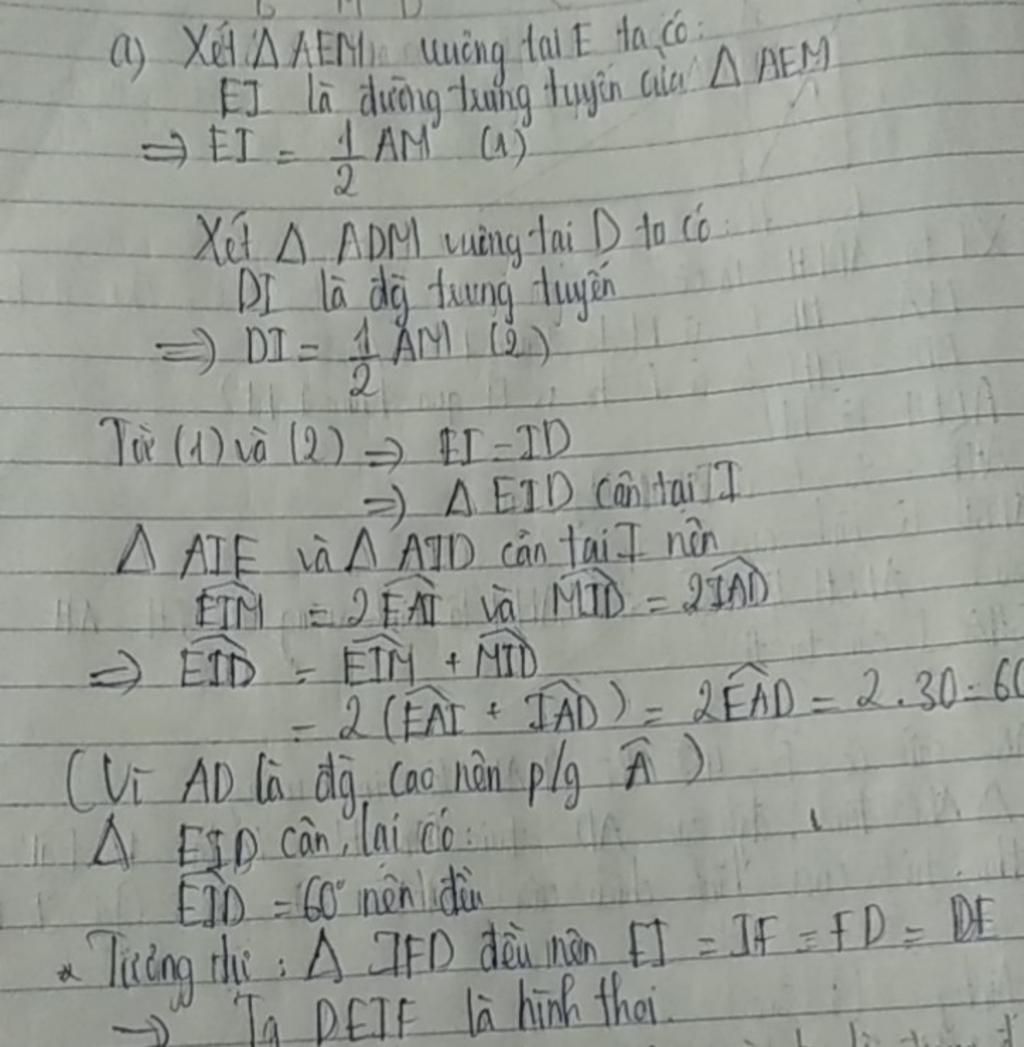 B M D
a) Xét Δ AEM vuông tại E ta có:
EI là đường trung tuyến của Δ AEM
⇒ EI = 1/2 AM (1)
Xét Δ ADM vuông tại D ta có
DI là đg trung tuyến
⇒ DI = 1/2 AM (2)
Từ (1) và (2) ⇒ EI = ID
⇒ Δ EID cân tại I
Δ AIE và Δ AID cân tại I nên
EIM = 2EAI và MID = 2IAD
⇒ EID = EIM + MID
= 2(EAI + IAD) = 2EAD = 2.30 = 60
(Vì AD là đg cao nên p/g A)
Δ EID cân, lại có:
EID = 60° nên đều
* Tương tự: Δ IFD đều nên EI = IF = FD = DE
→ Tg DEIF là hình thoi.